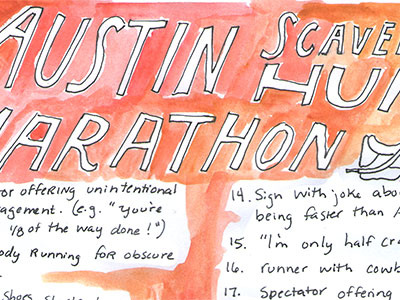 AUSTIN SCAVEN
HUN
MARATHON
tor offering unintentional
agement. (e.g. "you're
1/8 of the way done!")
ody Running for obscure
Shoes
14. Sign with joke abou
being faster than A
15. "I'm only half cra
16. runner with cowb
17. Spectator offering